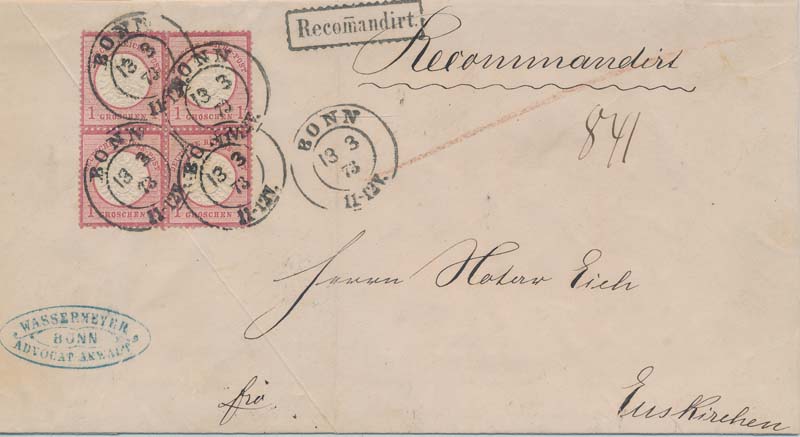 Recom̅andirt.
Recommandirt
841
BONN
13 3
73
II-12V.
BONN
13 3
73
II-12V.
BONN
13 3
73
II-12V.
BONN
13 3
73
II-12V.
BONN
13 3
73
II-12V.
1 GROSCHEN 1
1 GROSCHEN 1
1 GROSCHEN
1 GROSCHEN
Herrn Notar Eich
WASSERMEYER
BONN
ADVOCAT ANWALT
fro
Euskirchen